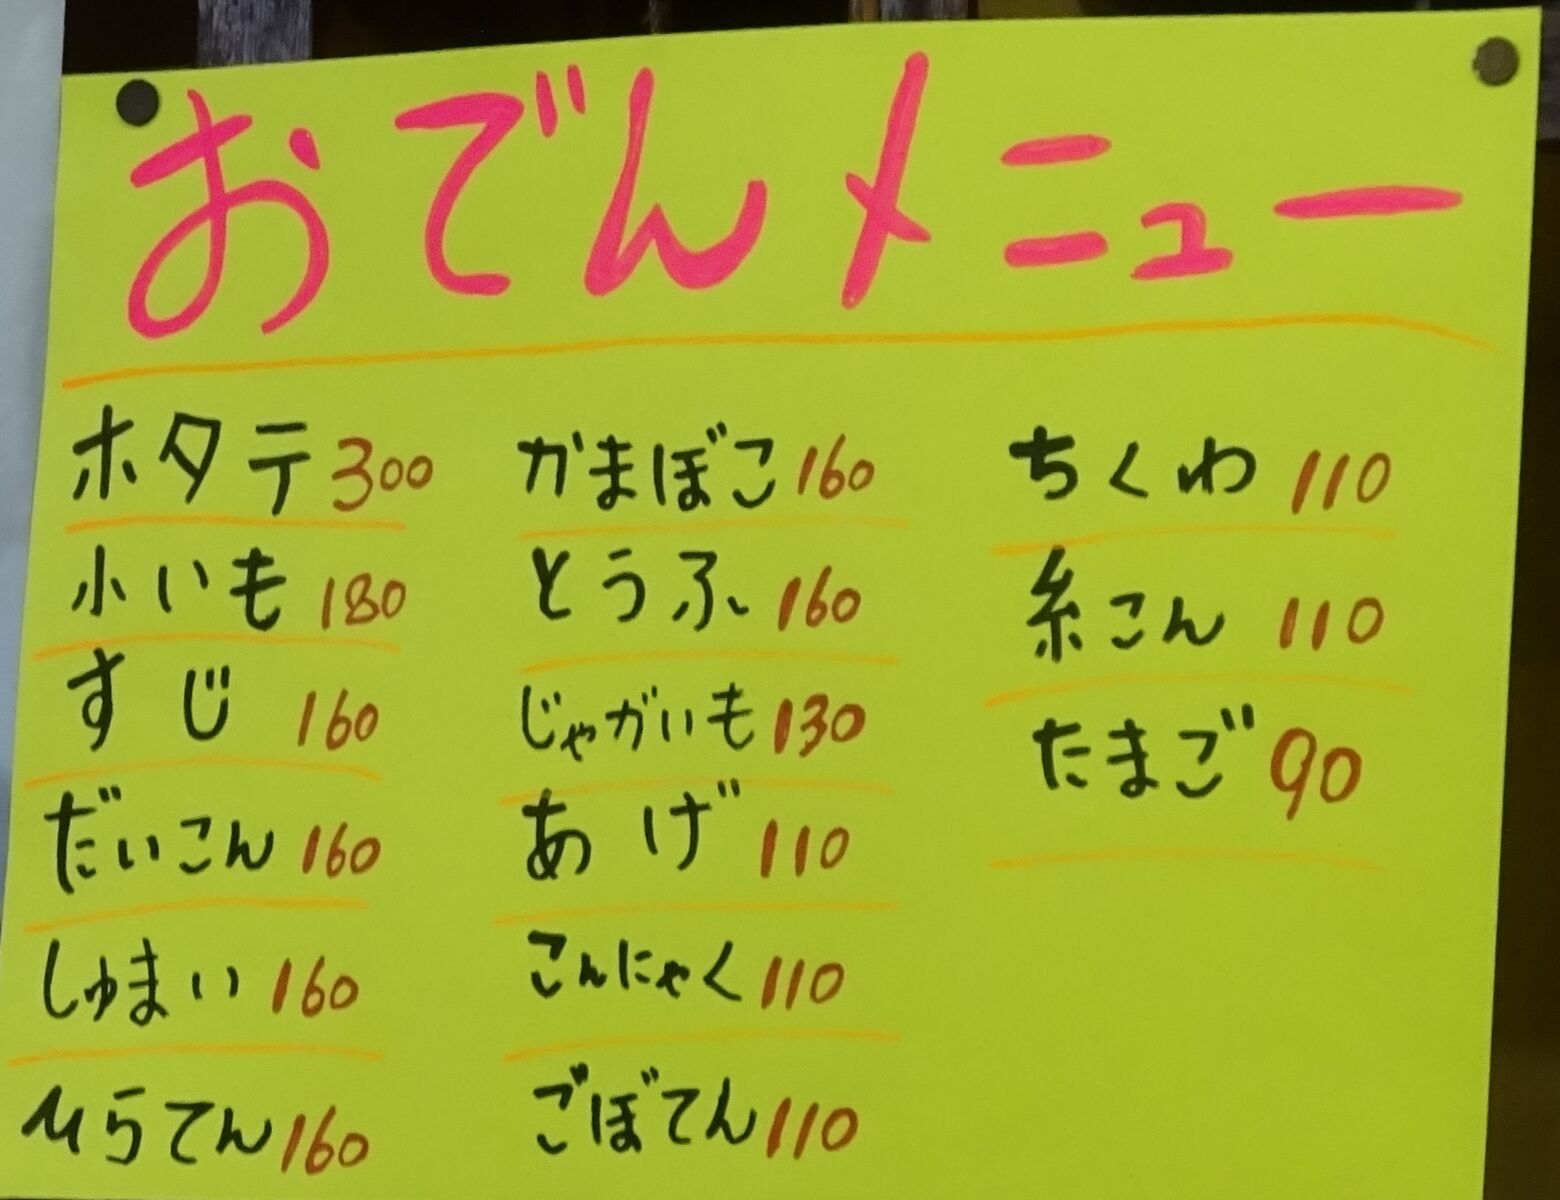 おでんメニュー
ホタテ 300
小いも 180
すじ 160
だいこん 160
しゅまい 160
ひらてん 160
かまぼこ 160
とうふ 160
じゃがいも 130
あげ 110
こんにゃく 110
ごぼてん 110
ちくわ 110
糸こん 110
たまご 90